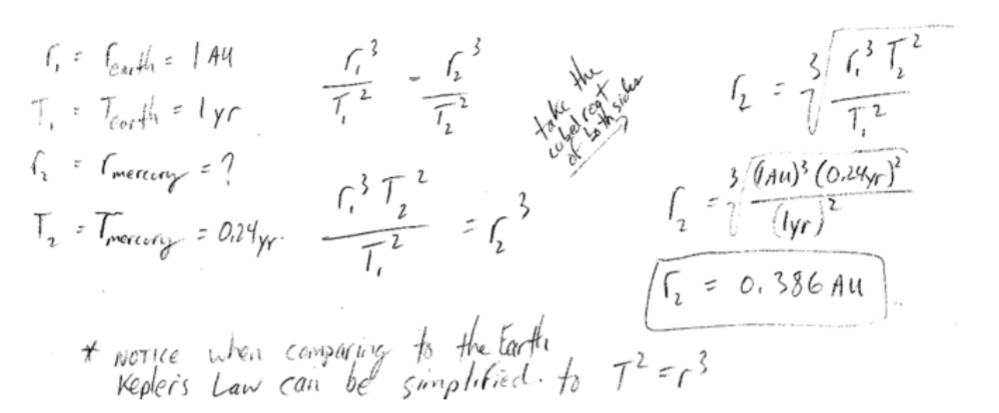 r₁ = r_earth = 1 AU
T₁ = T_earth = 1 yr
r₂ = r_mercury = ?
T₂ = T_mercury = 0.24 yr.
r₁³/T₁² = r₂³/T₂²
r₁³ T₂²/T₁² = r₂³
take the
cubed root
of both sides
r₂ = ∛(r₁³ T₂²/T₁²)
r₂ = ∛((1AU)³ (0.24yr)²/(1yr)²)
r₂ = 0.386 AU
* NOTICE when comparing to the Earth
Kepler's Law can be simplified. to T² = r³